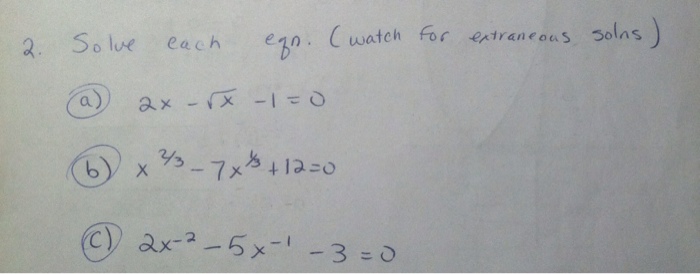 2. Solve each eqn. (watch for extraneous solns)
a) 2x - √x - 1 = 0
b) x^2/3 - 7x^1/3 + 12 = 0
c) 2x^-2 - 5x^-1 - 3 = 0